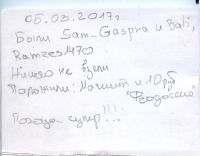 05.03.2017г
Были Sam_Gaspra и Bali,
Ramzes1470
Ничего не взяли
Положили: Магнит и 10 руб
"Феодосия"
Погода супер!!!